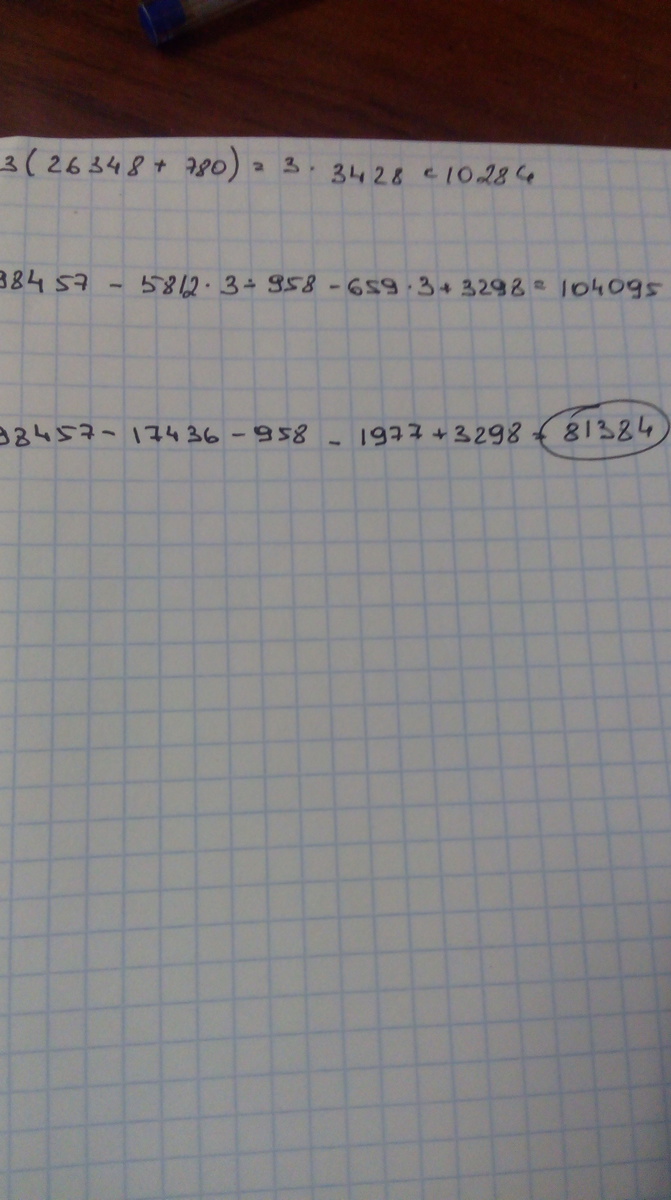 3(26348+780)=3·3428=10284
98457-5812·3-958-659·3+3298=104095
98457-17436-958-1977+3298=81384